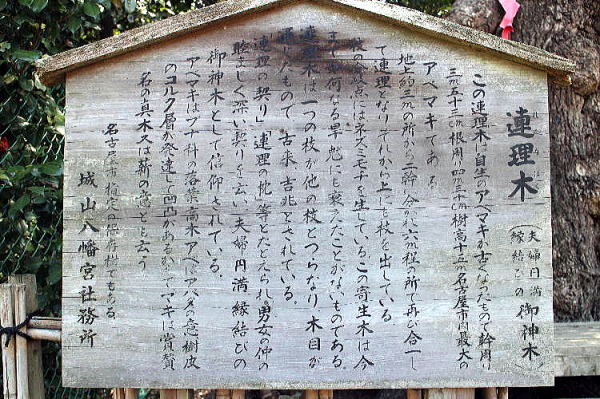 連理木
れんりぼく
夫婦円満
縁結びの
御神木
この連理木は自生のアベマキが古くなったもので幹周り
三m五十三 根周り四m三十 樹高十三m名古屋市内最大の
アベマキである。
地上約三mの所から二幹に分かれ六m程の所で再び合一し
て連理となりそれから上にも枝を出している
枝の分岐点にはネズミモチを生じている この寄生木は今
まで如何なる旱魃にも衰えたことがないものである。
連理木は一つの枝が他の枝とつらなり 木目が
通じたもので 古来吉兆とされている。
「連理の契り」「連理の枕」等とたとえられ 男女の仲の
睦まじく深い契りを云い 夫婦円満縁結びの
御神木として信仰されている。
アベマキはブナ科の落葉高木 アベはアバタの意 樹皮
のコルク層が発達して凹凸がある マキは賞賛
名の真木又は薪の意とも云う
名古屋市指定の保存樹でもある。
城山八幡宮社務所